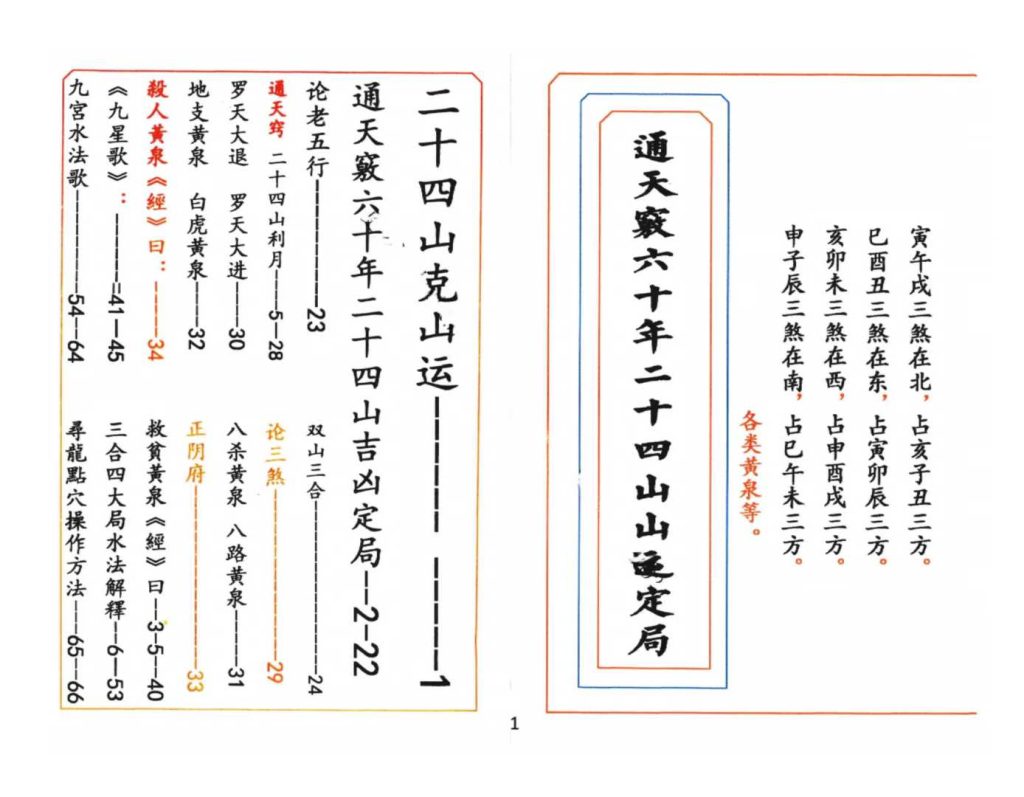 寅午戌三煞在北，占亥子丑三方。
巳酉丑三煞在东，占寅卯辰三方。
亥卯未三煞在西，占申酉戌三方。
申子辰三煞在南，占巳午未三方。
各类黄泉等。
通天竅六十年二十四山山運定局
二十四山克山运------------1
通天竅六十年二十四山吉凶定局--2-22
论老五行------------23
双山三合------------24
通天窍 二十四山利月-----5-28
论三煞------------29
罗天大退 罗天大进-----30
八杀黄泉 八路黄泉-----31
地支黄泉 白虎黄泉-----32
正阴府------------33
殺人黃泉《經》曰：-----34
救貧黃泉《經》曰--3-5--40
《九星歌》：------41—45
三合四大局水法解釋--6—53
九宮水法歌--------54--64
尋龍點穴操作方法---65--66
1